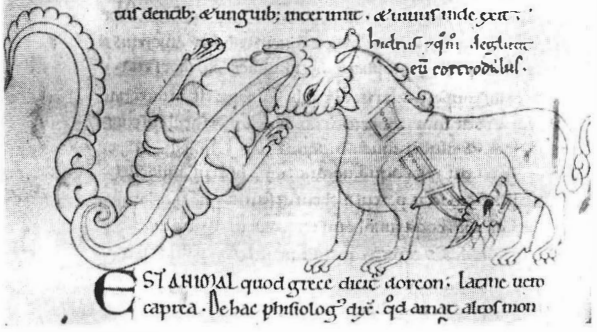 tus dentib; & unguib; interimit . & uiuus inde exit .
hidrus qm̄ deglutit
eū cocrodillus.
EST ANIMAL quod grece dicit̄ dorcon: latine uero
caprea . De hac phisiolog' dix̄. qđ amat altos mon